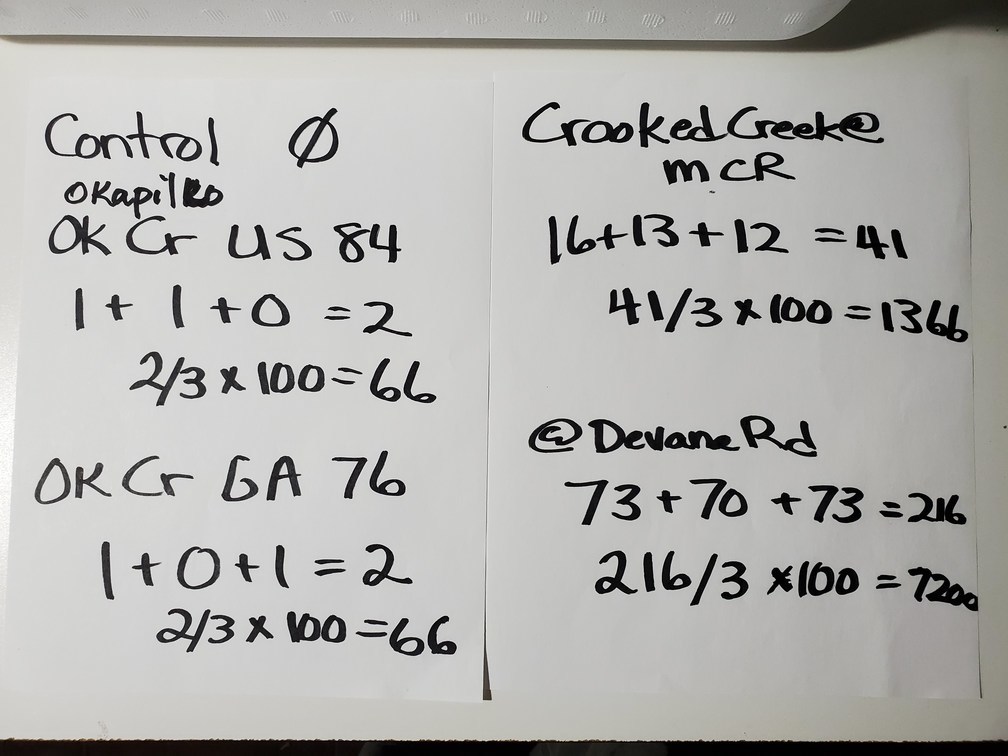 Control Ø
Okapilko
OK Cr US 84
1 + 1 + 0 = 2
2/3 x 100 = 66
OK Cr GA 76
1 + 0 + 1 = 2
2/3 x 100 = 66
Crooked Creek @
MCR
16 + 13 + 12 = 41
41/3 x 100 = 1366
@ Devane Rd
73 + 70 + 73 = 216
216/3 x 100 = 7200